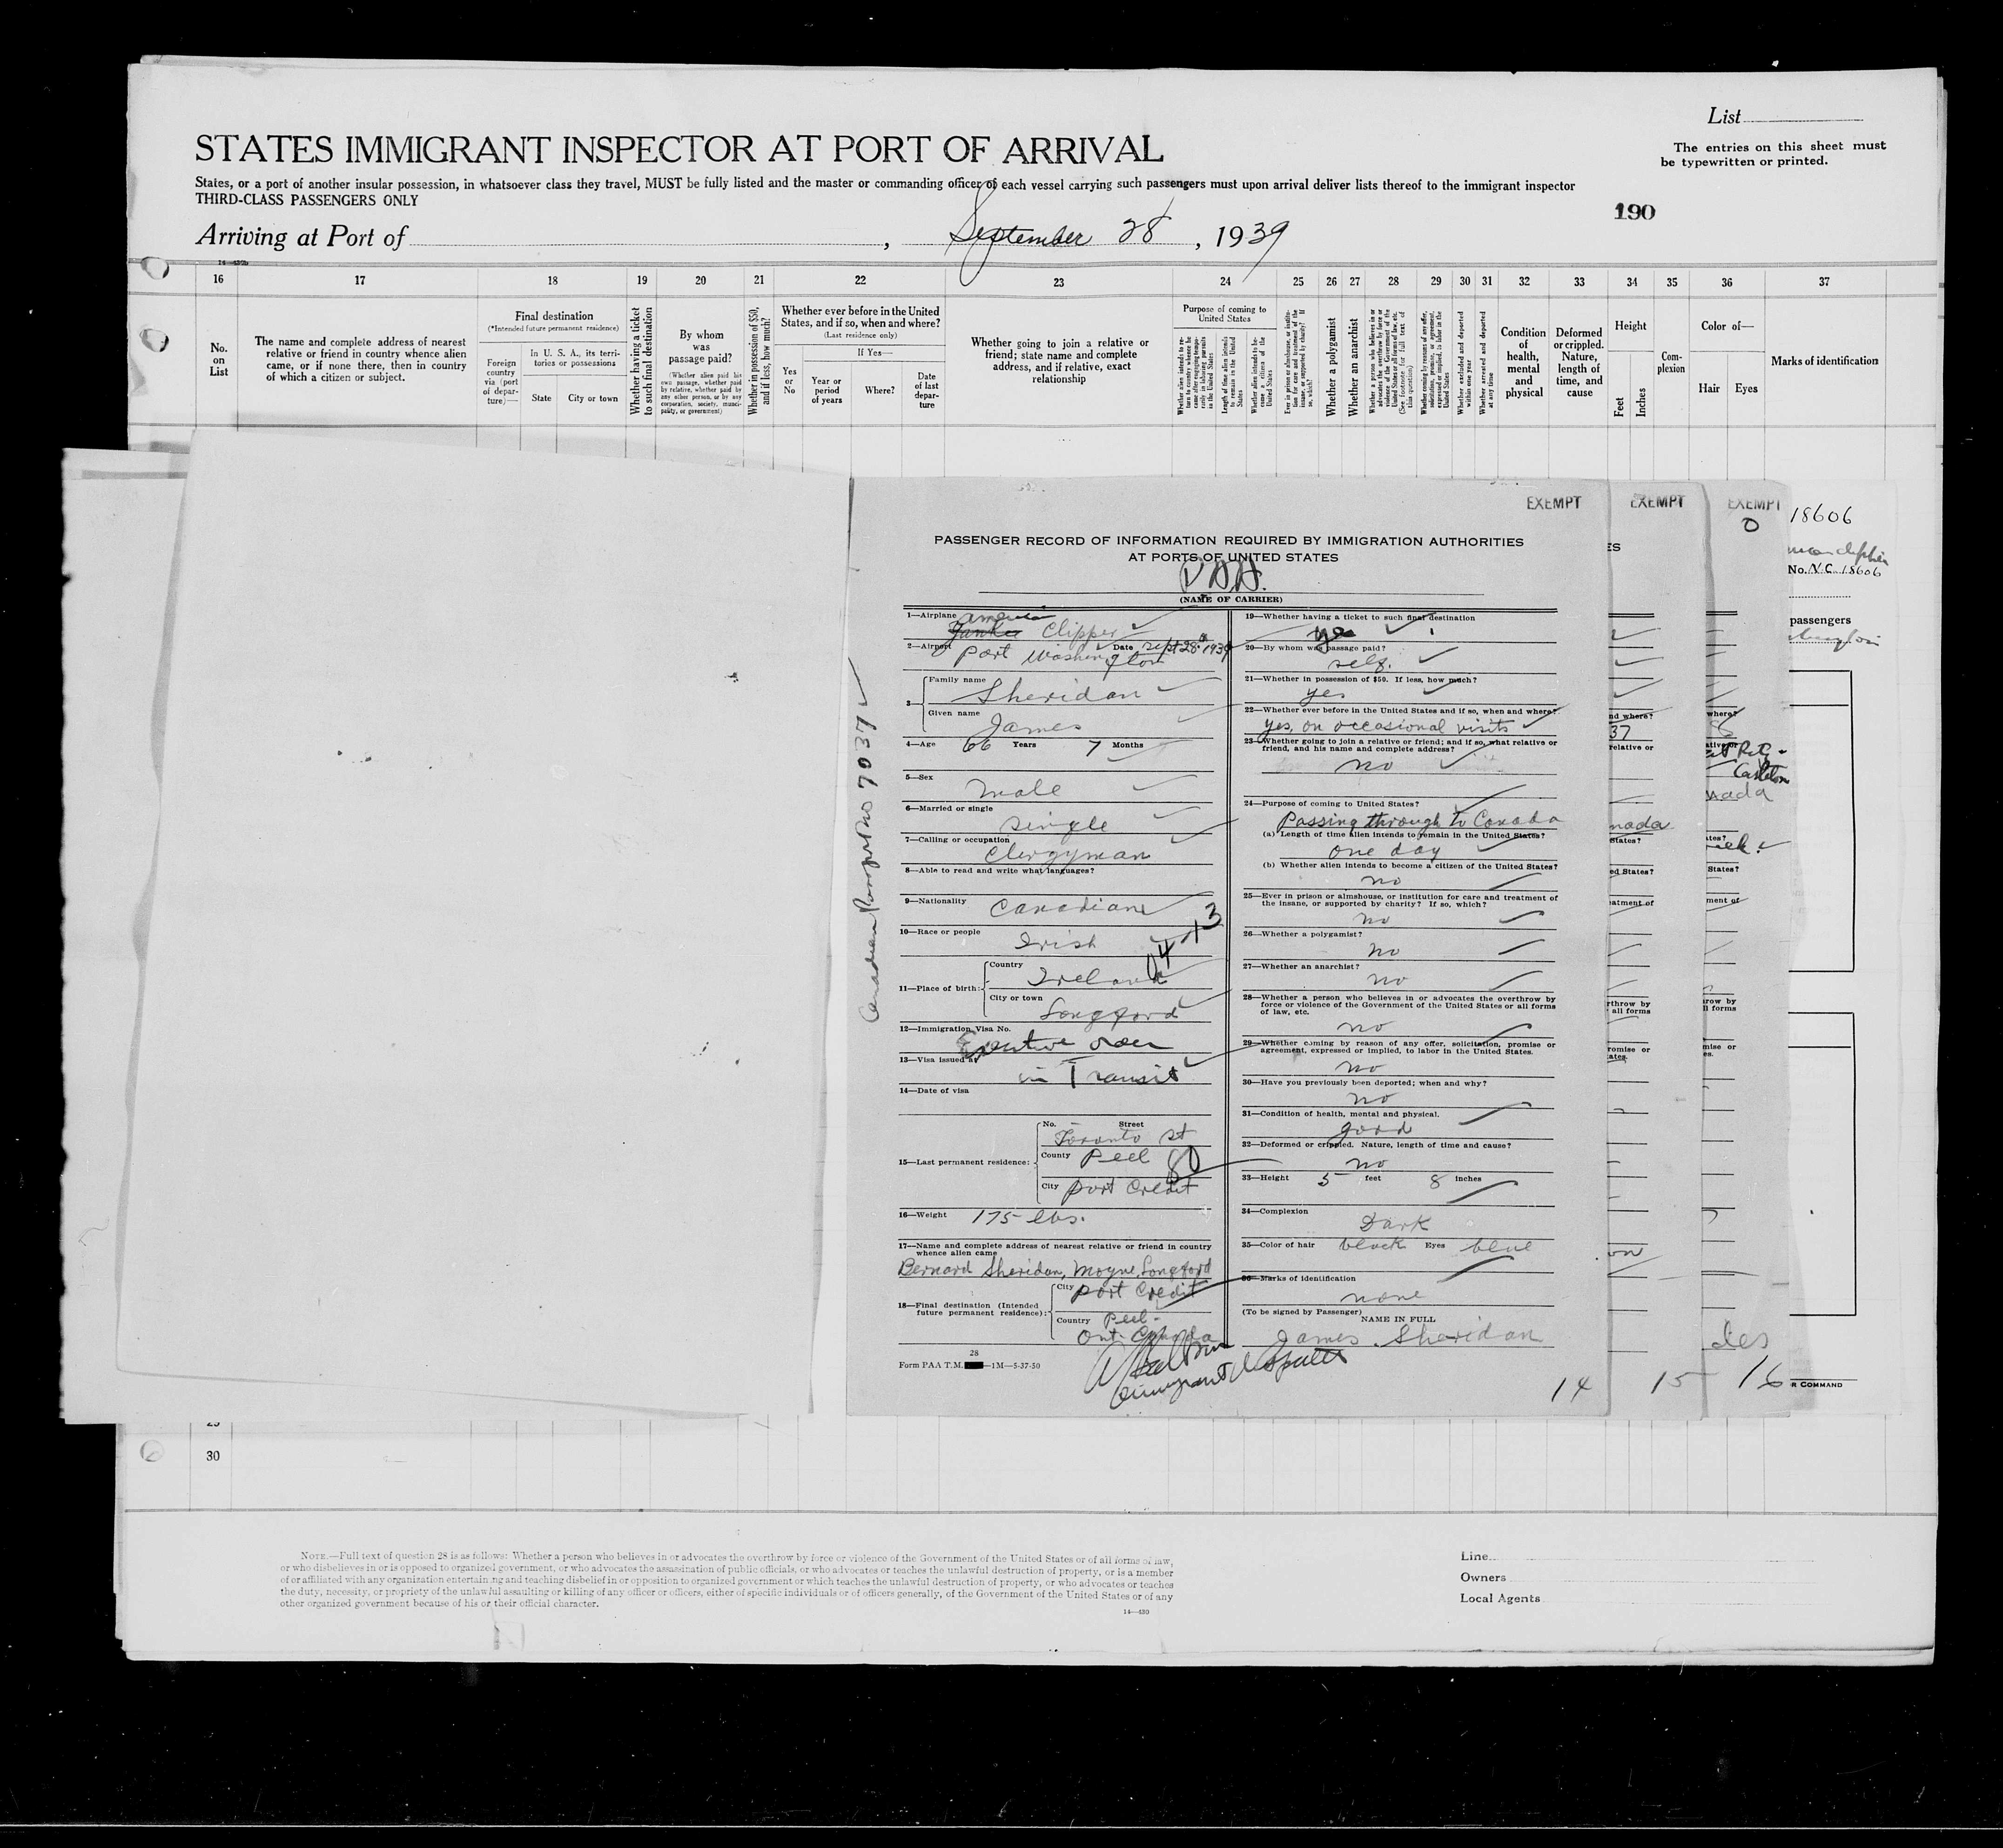 List
STATES IMMIGRANT INSPECTOR AT PORT OF ARRIVAL
The entries on this sheet must
be typewritten or printed.
States, or a port of another insular possession, in whatsoever class they travel, MUST be fully listed and the master or commanding officer of each vessel carrying such passengers must upon arrival deliver lists thereof to the immigrant inspector
THIRD-CLASS PASSENGERS ONLY
190
Arriving at Port of , September 28 , 1939
16 17 18 19 20 21 22 23 24 25 26 27 28 29 30 31 32 33 34 35 36 37
No.
on
List
The name and complete address of nearest
relative or friend in country whence alien
came, or if none there, then in country
of which a citizen or subject.
Final destination
(*Intended future permanent residence)
Foreign
country
via (port
of depar-
ture)—
In U. S. A., its terri-
tories or possessions
State City or town
Whether having a ticket
to such final destination
By whom
was
passage paid?
(Whether alien paid his
own passage, whether paid
by relative, whether paid by
any other person, or by any
corporation, society, munici-
pality, or government)
Whether in possession of $50,
and if less, how much?
Whether ever before in the United
States, and if so, when and where?
(Last residence only)
Yes
or
No
If Yes—
Year or
period
of years
Where?
Date
of last
depar-
ture
Whether going to join a relative or
friend; state name and complete
address, and if relative, exact
relationship
Purpose of coming to
United States
Length of time alien intends
to remain in the United
States
Whether alien intends to be-
come a citizen of the
United States
Whether a polygamist
Whether an anarchist
Condition
of
health,
mental
and
physical
Deformed
or crippled.
Nature,
length of
time, and
cause
Height
Feet
Inches
Com-
plexion
Color of—
Hair Eyes
Marks of identification
EXEMPT
EXEMPT
EXEMPT
18606
PASSENGER RECORD OF INFORMATION REQUIRED BY IMMIGRATION AUTHORITIES
AT PORTS OF UNITED STATES
No. N.C. 18606
(NAME OF CARRIER)
passengers
Canadian Passport No 7037
1—Airplane America Yankee Clipper
2—Airport Port Washington Date Sept 28 1939
3 Family name Sheridan
Given name James
4—Age 66 Years 7 Months
5—Sex
Male
6—Married or single
single
7—Calling or occupation
Clergyman
8—Able to read and write what languages?
9—Nationality Canadian
10—Race or people
Irish
04 + 3
11—Place of birth: Country
Ireland
City or town
Longford
12—Immigration Visa No.
Executive order
13—Visa issued at
in Transit
14—Date of visa
15—Last permanent residence: No. Street
Toronto St
County Peel
80
City Port Credit
16—Weight 175 lbs.
17—Name and complete address of nearest relative or friend in country
whence alien came
Bernard Sheridan, Moyne, Longford
18—Final destination (Intended
future permanent residence):
City Port Credit
Country Peel -
Ont. Canada
28
Form PAA T.M. —1M—5-37-50
19—Whether having a ticket to such final destination
yes
20—By whom was passage paid?
self.
21—Whether in possession of $50. If less, how much?
yes
22—Whether ever before in the United States and if so, when and where?
yes, on occasional visits
23—Whether going to join a relative or friend; and if so, what relative or
friend, and his name and complete address?
no
24—Purpose of coming to United States?
Passing through to Canada
(a) Length of time alien intends to remain in the United States?
one day
(b) Whether alien intends to become a citizen of the United States?
no
25—Ever in prison or almshouse, or institution for care and treatment of
the insane, or supported by charity? If so, which?
no
26—Whether a polygamist?
no
27—Whether an anarchist?
no
28—Whether a person who believes in or advocates the overthrow by
force or violence of the Government of the United States or all forms
of law, etc.
no
29—Whether coming by reason of any offer, solicitation, promise or
agreement, expressed or implied, to labor in the United States.
no
30—Have you previously been deported; when and why?
no
31—Condition of health, mental and physical.
good
32—Deformed or crippled. Nature, length of time and cause?
no
33—Height 5 feet 8 inches
34—Complexion
Dark
35—Color of hair black Eyes blue
36—Marks of identification
none
(To be signed by Passenger)
NAME IN FULL
James Sheridan
14
15
16
R COMMAND
30
NOTE.—Full text of question 28 is as follows: Whether a person who believes in or advocates the overthrow by force or violence of the Government of the United States or of all forms of law,
or who disbelieves in or is opposed to organized government, or who advocates the assassination of public officials, or who advocates or teaches the unlawful destruction of property, or is a member
of or affiliated with any organization entertaining and teaching disbelief in or opposition to organized government or which teaches the unlawful destruction of property, or who advocates or teaches
the duty, necessity, or propriety of the unlawful assaulting or killing of any officer or officers, either of specific individuals or of officers generally, of the Government of the United States or of any
other organized government because of his or their official character.
14—430
Line
Owners
Local Agents